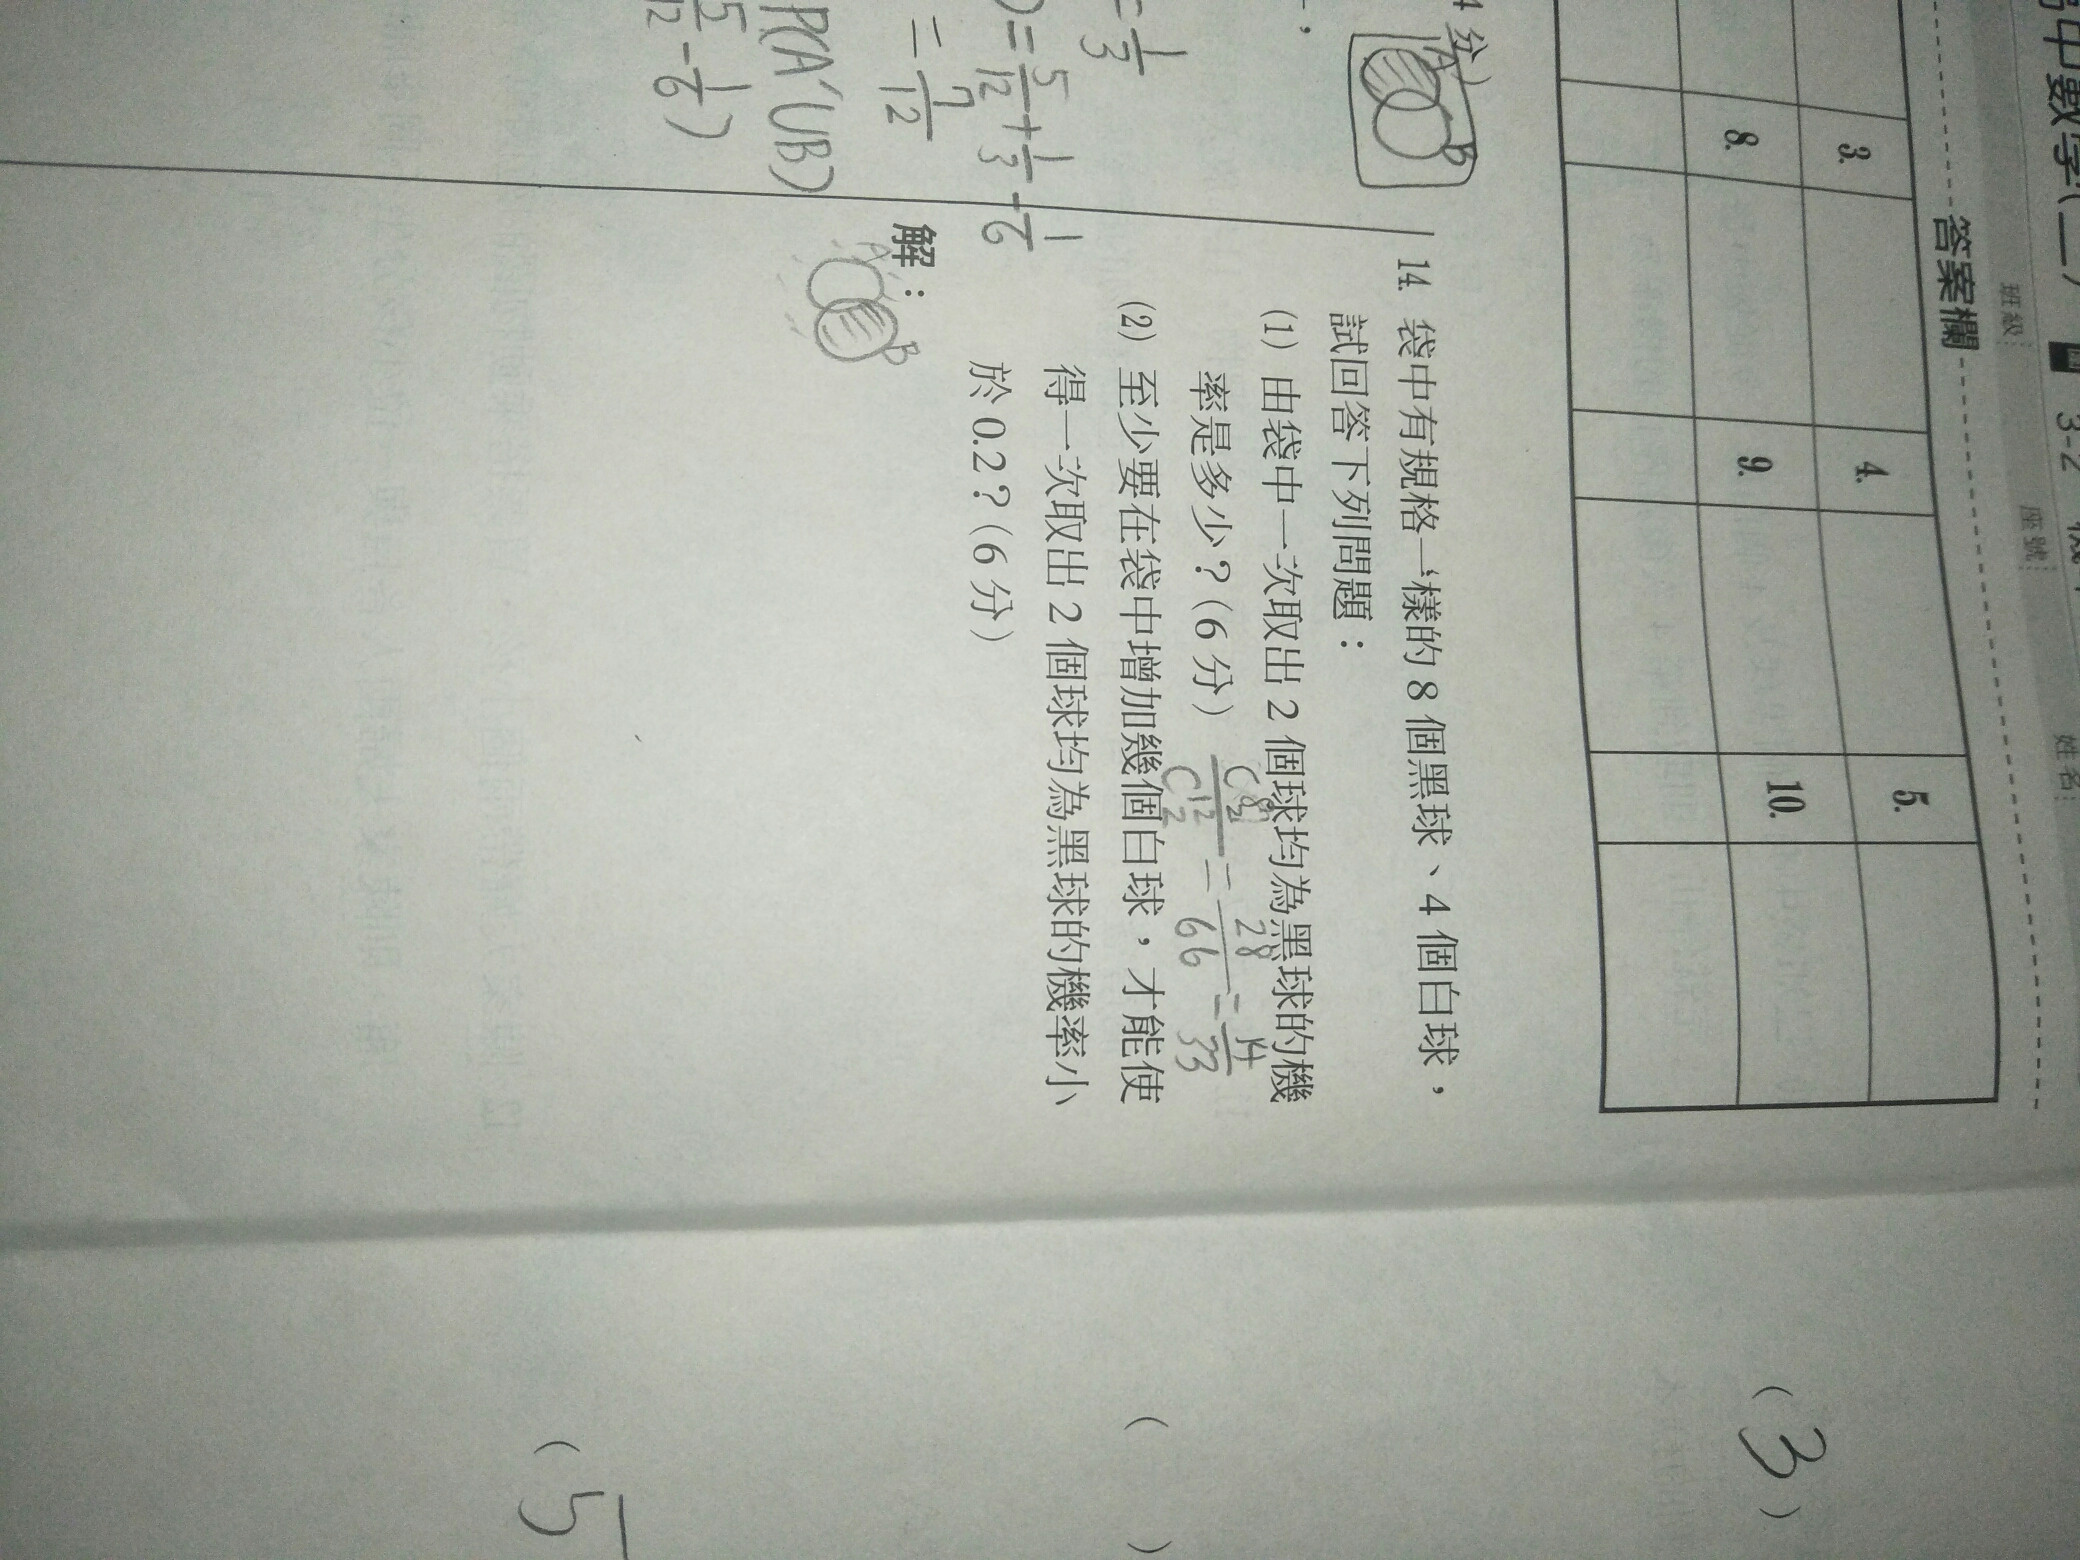 高中數學(二)
3-2
班級:
座號:
姓名:
答案欄
3.
4.
5.
8.
9.
10.
4分)
A
B
=1/3
)=5/12+1/3-1/6
=7/12
P(A'∪B)
5/12-1/6)
14. 袋中有規格一樣的8個黑球、4個白球,
試回答下列問題:
(1) 由袋中一次取出2個球均為黑球的機
率是多少?(6分)
C⁸₂/C¹²₂=28/66=14/33
(2) 至少要在袋中增加幾個白球,才能使
得一次取出2個球均為黑球的機率小
於0.2?(6分)
解:
A
B
(3)
( )
(5